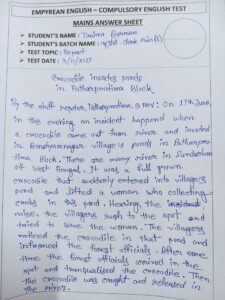 EMPYREAN ENGLISH – COMPULSORY ENGLISH TEST
MAINS ANSWER SHEET
➤ STUDENT'S NAME : Tanima Barman
➤ STUDENT'S BATCH NAME :
➤ TEST TOPIC : Report
➤ TEST DATE : 9/11/2025
Crocodile invades ponds
in Patharpratima Block
By the staff reporter, Patharpratima, 9 Nov : On 17th June,
in the evening an incident happend when
a crocodile came out from river and invaded
in village's ponds in Patharpra-
tima Block. There are many river in Sundarban
of West Bengal. It was a full grown
crocodile that suddenly entered into villagers
pond and lifted a woman who collecting
crabs in this pond. Hearing the
noise, the villagers rush to the spot and
tried to save the woman. The villagers
noticed the crocodile in that pond and
informed the forest officials. After some
time the forest officials arrived in the
spot and tranquilised the crocodile. Then
the crocodile was caught and released in
the river.